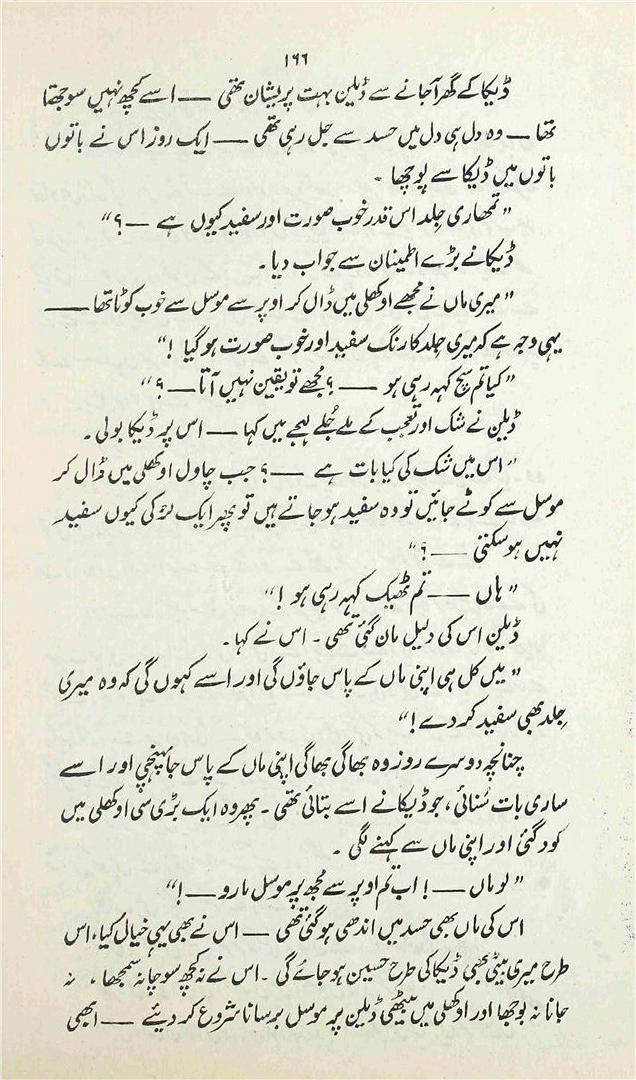 ۱۶۶
ڈیکا کے گھر آجانے سے ڈیلین بہت پریشان تھی — اسے کچھ نہیں سوجھتا
تھا — وہ دل ہی دل میں حسد سے جل رہی تھی — ایک روز اس نے باتوں
باتوں میں ڈیکا سے پوچھا -
" تمھاری جلد اس قدر خوب صورت اور سفید کیوں ہے — ؟"
ڈیکا نے بڑے اطمینان سے جواب دیا۔
" میری ماں نے مجھے اوکھلی میں ڈال کر اوپر سے موسل سے خوب کوٹا تھا —
یہی وجہ ہے کہ میری جلد کا رنگ سفید اور خوب صورت ہو گیا !"
" کیا تم سچ کہہ رہی ہو — ؟ مجھے تو یقین نہیں آتا — ؟"
ڈیلین نے شک اور تعجب کے ملے جُلے لہجے میں کہا — اس پر ڈیکا بولی۔
" اس میں شک کی کیا بات ہے — ؟ جب چاول اوکھلی میں ڈال کر
موسل سے کوٹے جائیں تو وہ سفید ہو جاتے ہیں تو پھر ایک لڑکی کیوں سفید
نہیں ہو سکتی — ؟"
" ہاں — تم ٹھیک کہہ رہی ہو !"
ڈیلین اس کی دلیل مان گئی تھی ۔ اس نے کہا۔
" میں کل ہی اپنی ماں کے پاس جاؤں گی اور اسے کہوں گی کہ وہ میری
جلد بھی سفید کر دے !"
چنانچہ دوسرے روز وہ بھاگی بھاگی اپنی ماں کے پاس جا پہنچی اور اسے
ساری بات سُنائی ، جو ڈیکا نے اسے بتائی تھی ۔ پھر وہ ایک بڑی سی اوکھلی میں
کود گئی اور اپنی ماں سے کہنے لگی ۔
" لو ماں — ! اب تم اوپر سے مجھ پر موسل مارو — !"
اس کی ماں بھی حسد میں اندھی ہو گئی تھی — اس نے بھی یہی خیال کیا ، اس
طرح میری بیٹی بھی ڈیکا کی طرح حسین ہو جائے گی ۔ اس نے نہ کچھ سوچا نہ سمجھا ، نہ
جانا نہ بوجھا اور اوکھلی میں بیٹھی ڈیلین پر موسل برسانا شروع کر دیئے — ابھی